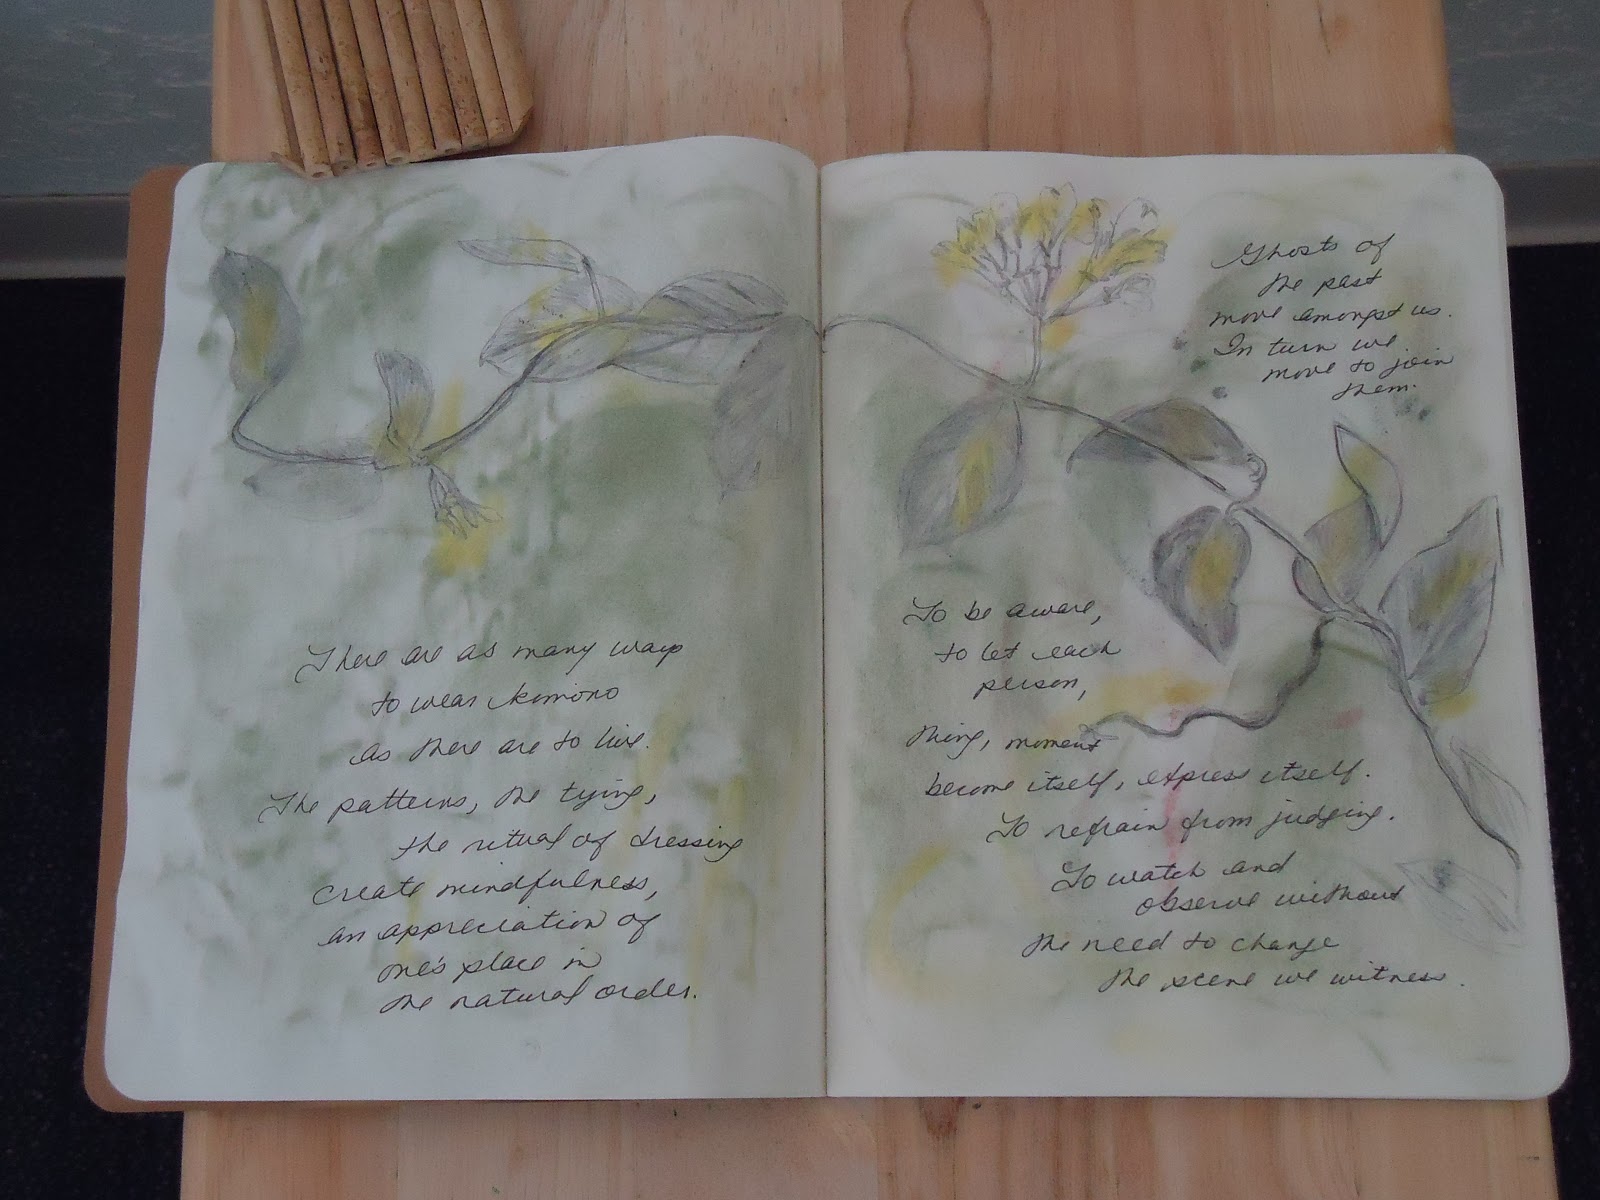 There are as many ways
to wear kimono
as there are to live.
The patterns, the tying,
the ritual of dressing
create mindfulness,
an appreciation of
one's place in
the natural order.
Ghosts of
the past
move amongst us.
In turn we
move to join
them.
To be aware,
to let each
person,
thing, moment
become itself, express itself.
To refrain from judging.
To watch and
observe without
the need to change
the scene we witness.